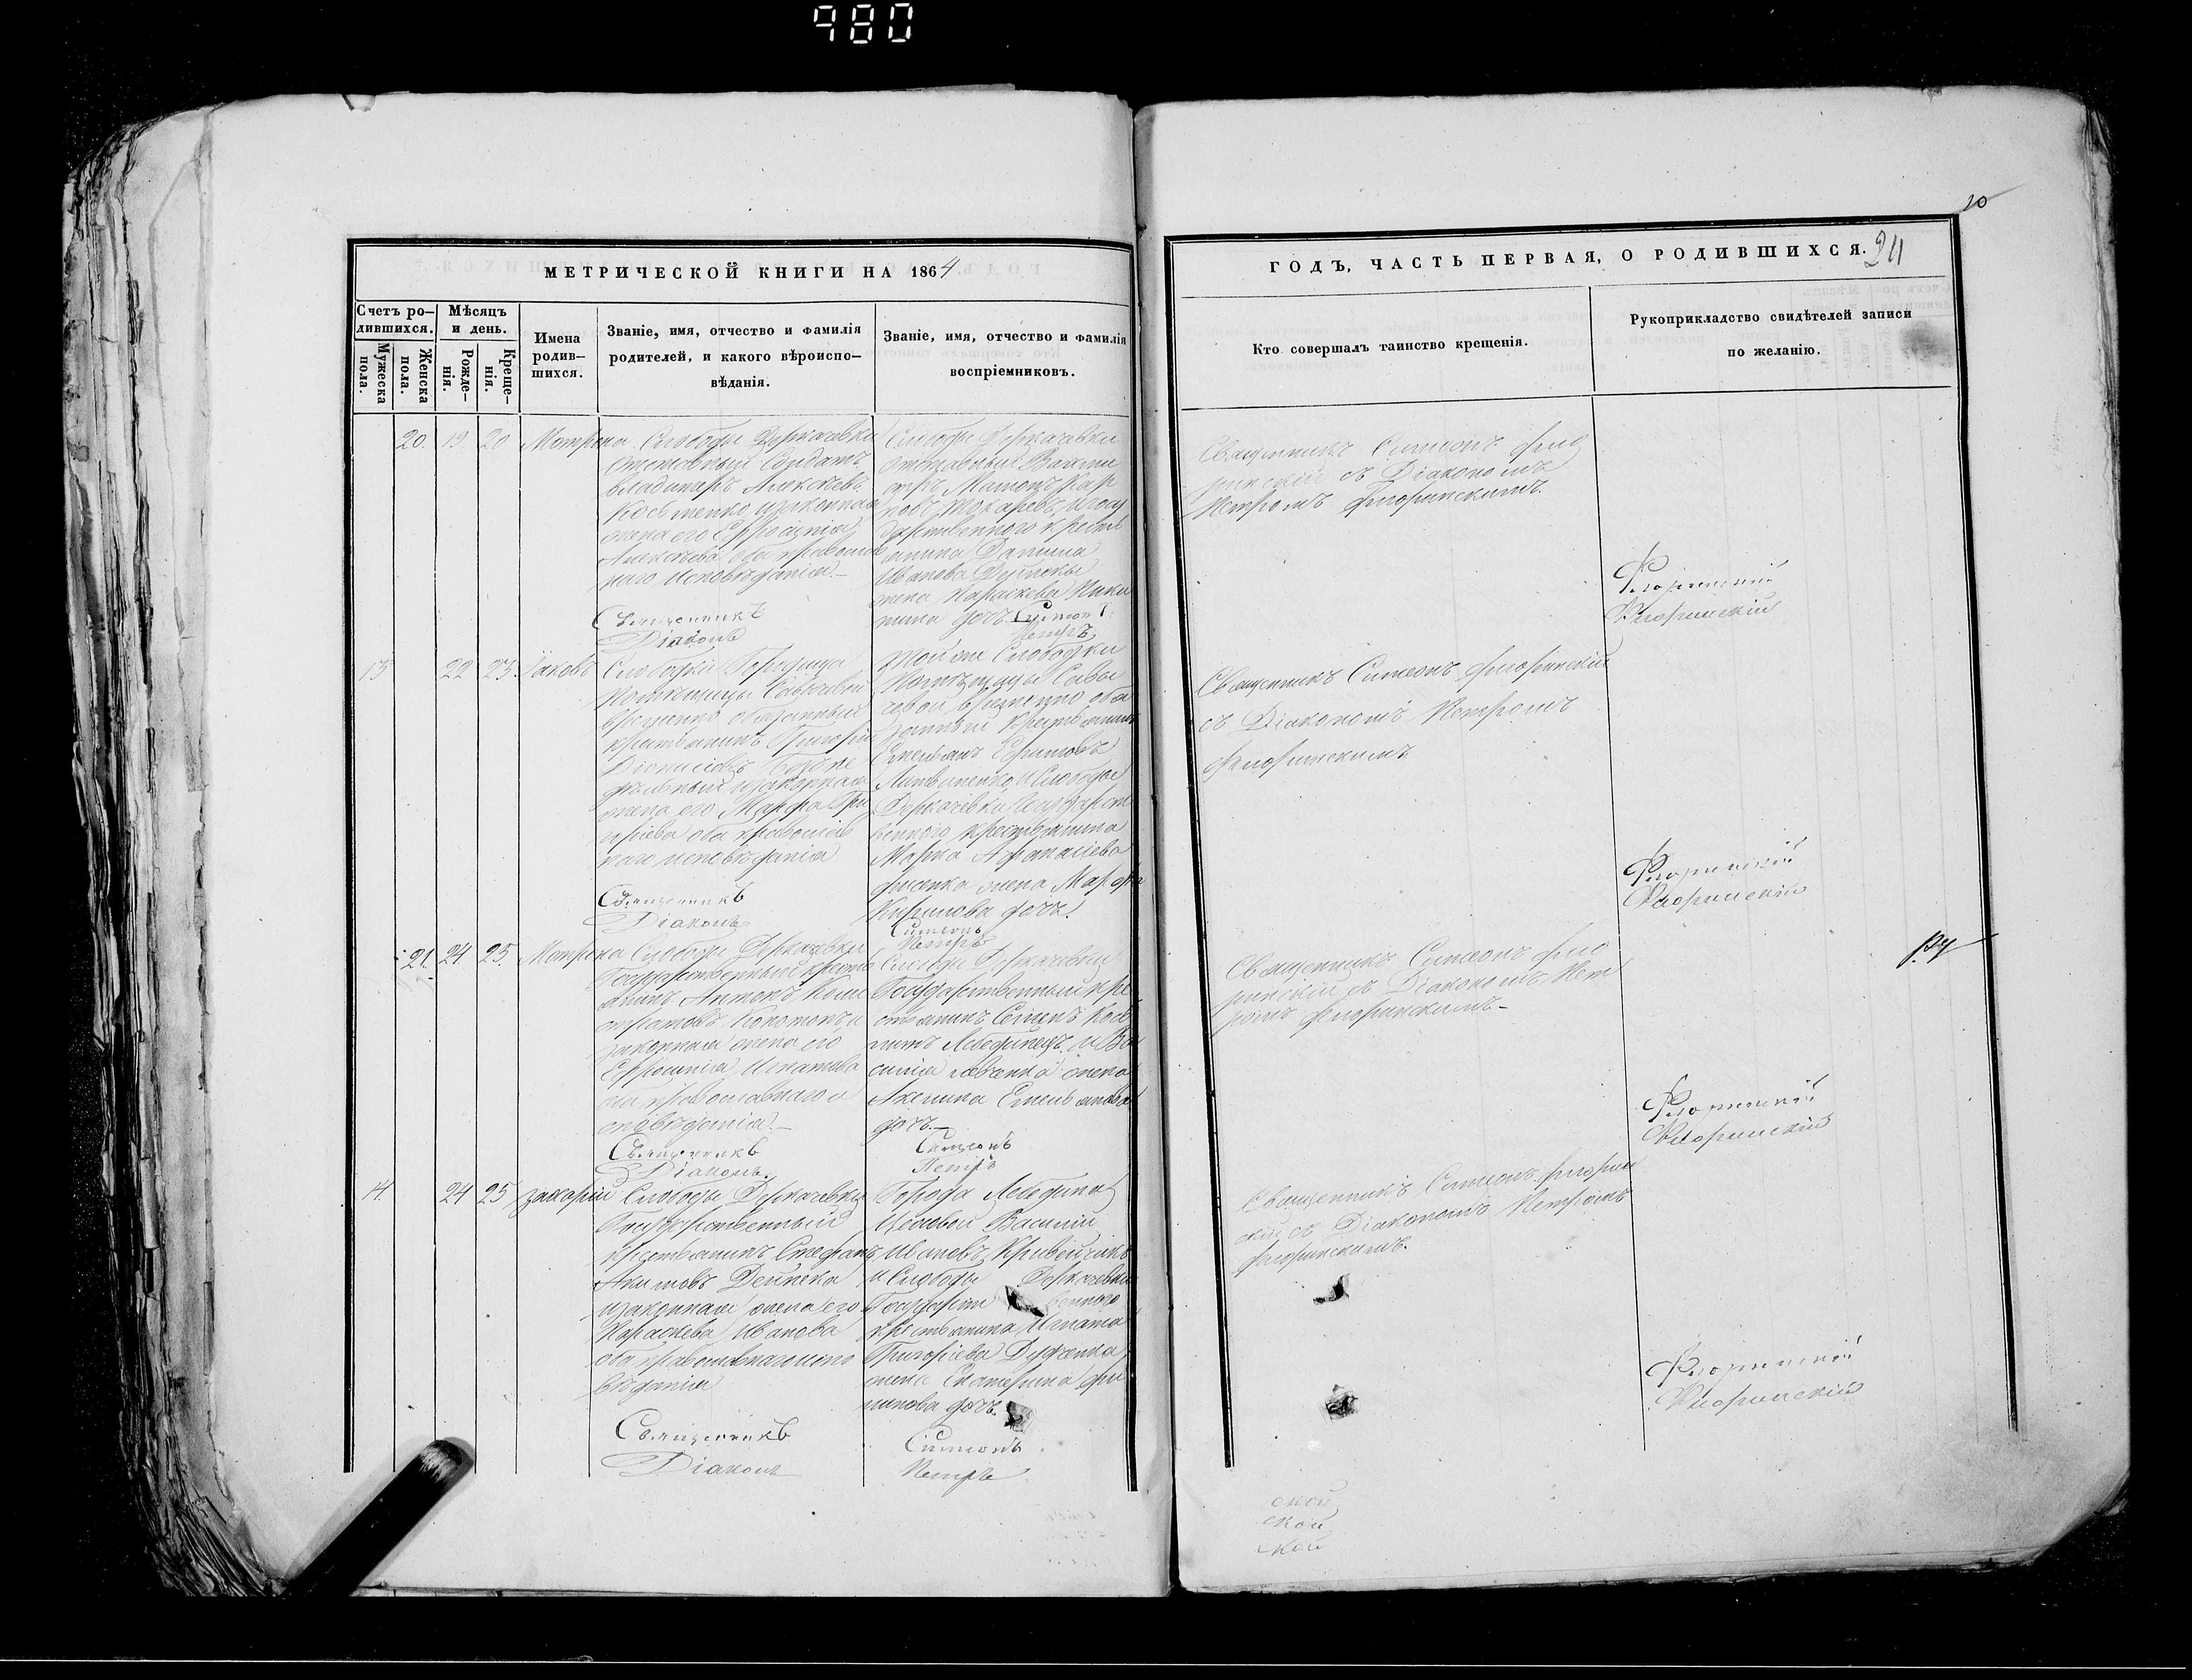 980
20
МЕТРИЧЕСКОЙ КНИГИ НА 1864
ГОДЪ, ЧАСТЬ ПЕРВАЯ, О РОДИВШИХСЯ. 24
Счетъ ро-
дившихся.
Мужеска
пола.
Женска
пола.
Мѣсяцъ
и день.
Рожде-
нія.
Креще-
нія.
Имена
родив-
шихся.
Званіе, имя, отчество и фамилія
родителей, и какого вѣроиспо-
вѣданія.
Званіе, имя, отчество и фамилія
воспріемниковъ.
Кто совершалъ таинство крещенія.
Рукоприкладство свидѣтелей записи
по желанію.
20. 19 20 Мотрона
Слободы Деркачевки
отставный Солдатъ
Алексѣевъ
и законная
жена его Ефросинія
Алексѣева оба православ
наго исповѣданія.-
Священникъ
Діаконъ
Слободы Деркачевки
отставный Вахми
стръ Кар
повъ Токаревъ, и госу
дарственного кресть
янина Даниила
Иванова
жена Параскева Ники
тина дочь. Симеонъ
Петръ
Священникъ Симеонъ Фло
ринскій съ Діакономъ
Петромъ Флоринскимъ.
Флоринскій
Флоринскій
13 22 23. Іаковъ
Слободки Городища
Помѣщицы
временно обязанный
крестьянинъ Григорій
Діонисіевъ
и законная
жена его Марфа Гри
горіева оба православ
наго исповѣданія
Священникъ
Діаконъ
Той же Слободки
Помѣщицы
временно обя
занный крестьянинъ
Емельянъ Ефимовъ
Литвиненко, и Слободы
Деркачевки Государст
венного крестьянина
Марка Афанасіева
жена Марфа
Кирилова дочь.
Симеонъ
Петръ
Священникъ Симеонъ Флоринскій
съ Діакономъ Петромъ
Флоринскимъ
Флоринскій
Флоринскій
21. 24. 25. Мотрона
Слободы Деркачевки
Государственный кресть
янинъ Антонъ
законная жена его
Ефросинія Игнатова
оба православнаго и
сповѣданія.-
Священникъ
Діаконъ.
Слободы Деркачевки
Государственный кре
стьянинъ Семенъ
Лебединецъ, и Ва
силія жена
Акилина Емельянова
дочь.-
Симеонъ
Петръ
Священникъ Симеонъ Фло
ринскій съ Діакономъ Пет
ромъ Флоринскимъ-
Флоринскій
Флоринскій
14. 24 25 Захарій
Слободы Деркачевки
Государственный
крестьянинъ Стефанъ
Акимовъ Дейнека
и законная жена его
Параскева Иванова
оба православнаго испо
вѣданія
Священникъ
Діаконъ
Города Лебедина
Цеховой Василій
Ивановъ
и Слободы Деркачевки
Государст венного
крестьянина Игната
Григоріева
жена Екатерина Фи
липова дочь.
Симеонъ
Петръ
Священникъ Симеонъ Флорин
скій съ Діакономъ Петромъ
Флоринскимъ.
Флоринскій
Флоринскій
ской
ской
кой